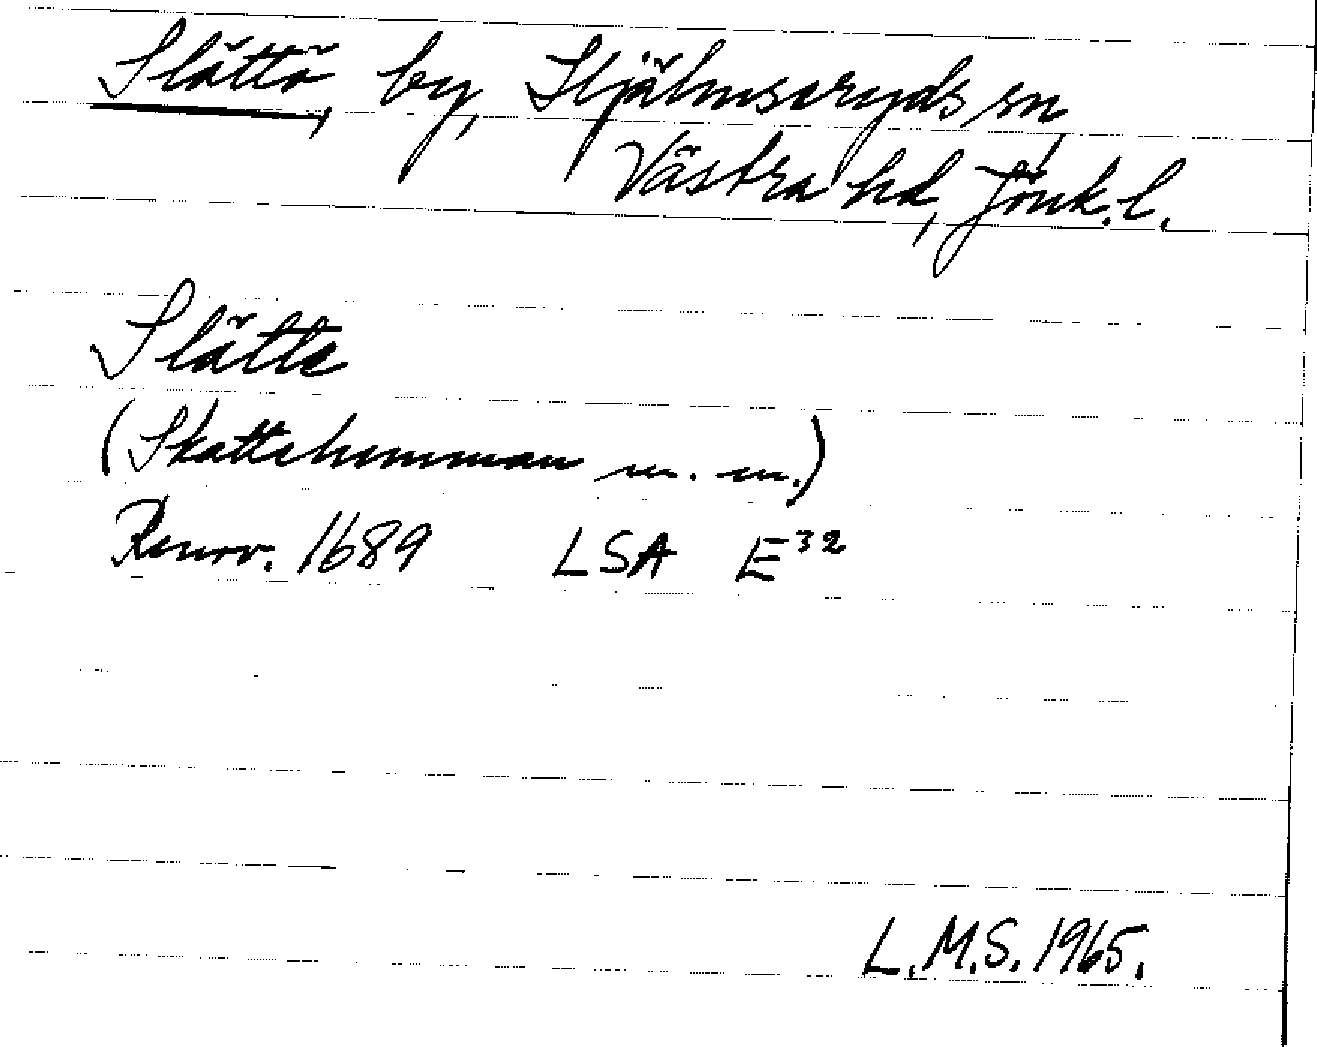 Slättö, by, Hjälmseryds sn,
Västra hd, Jönk. l.
Slätte
(Skattehemman m. m.)
Renov. 1689 LSA E³²
L.M.S. 1965.